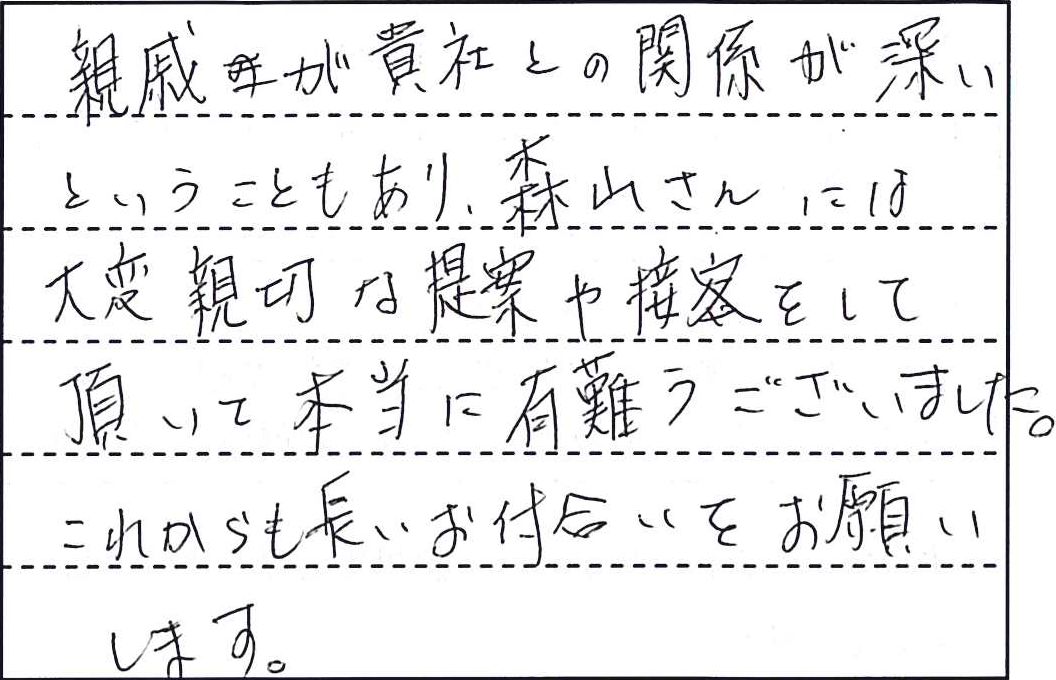 親戚が貴社との関係が深い
ということもあり、森山さんには
大変親切な提案や接客をして
頂いて本当に有難うございました。
これからも長いお付合いをお願い
します。